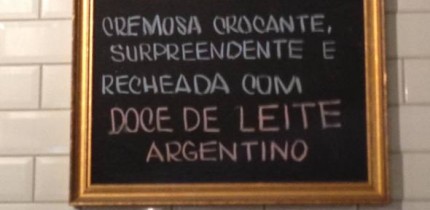 CREMOSA CROCANTE,
SURPREENDENTE E
RECHEADA COM
DOCE DE LEITE
ARGENTINO